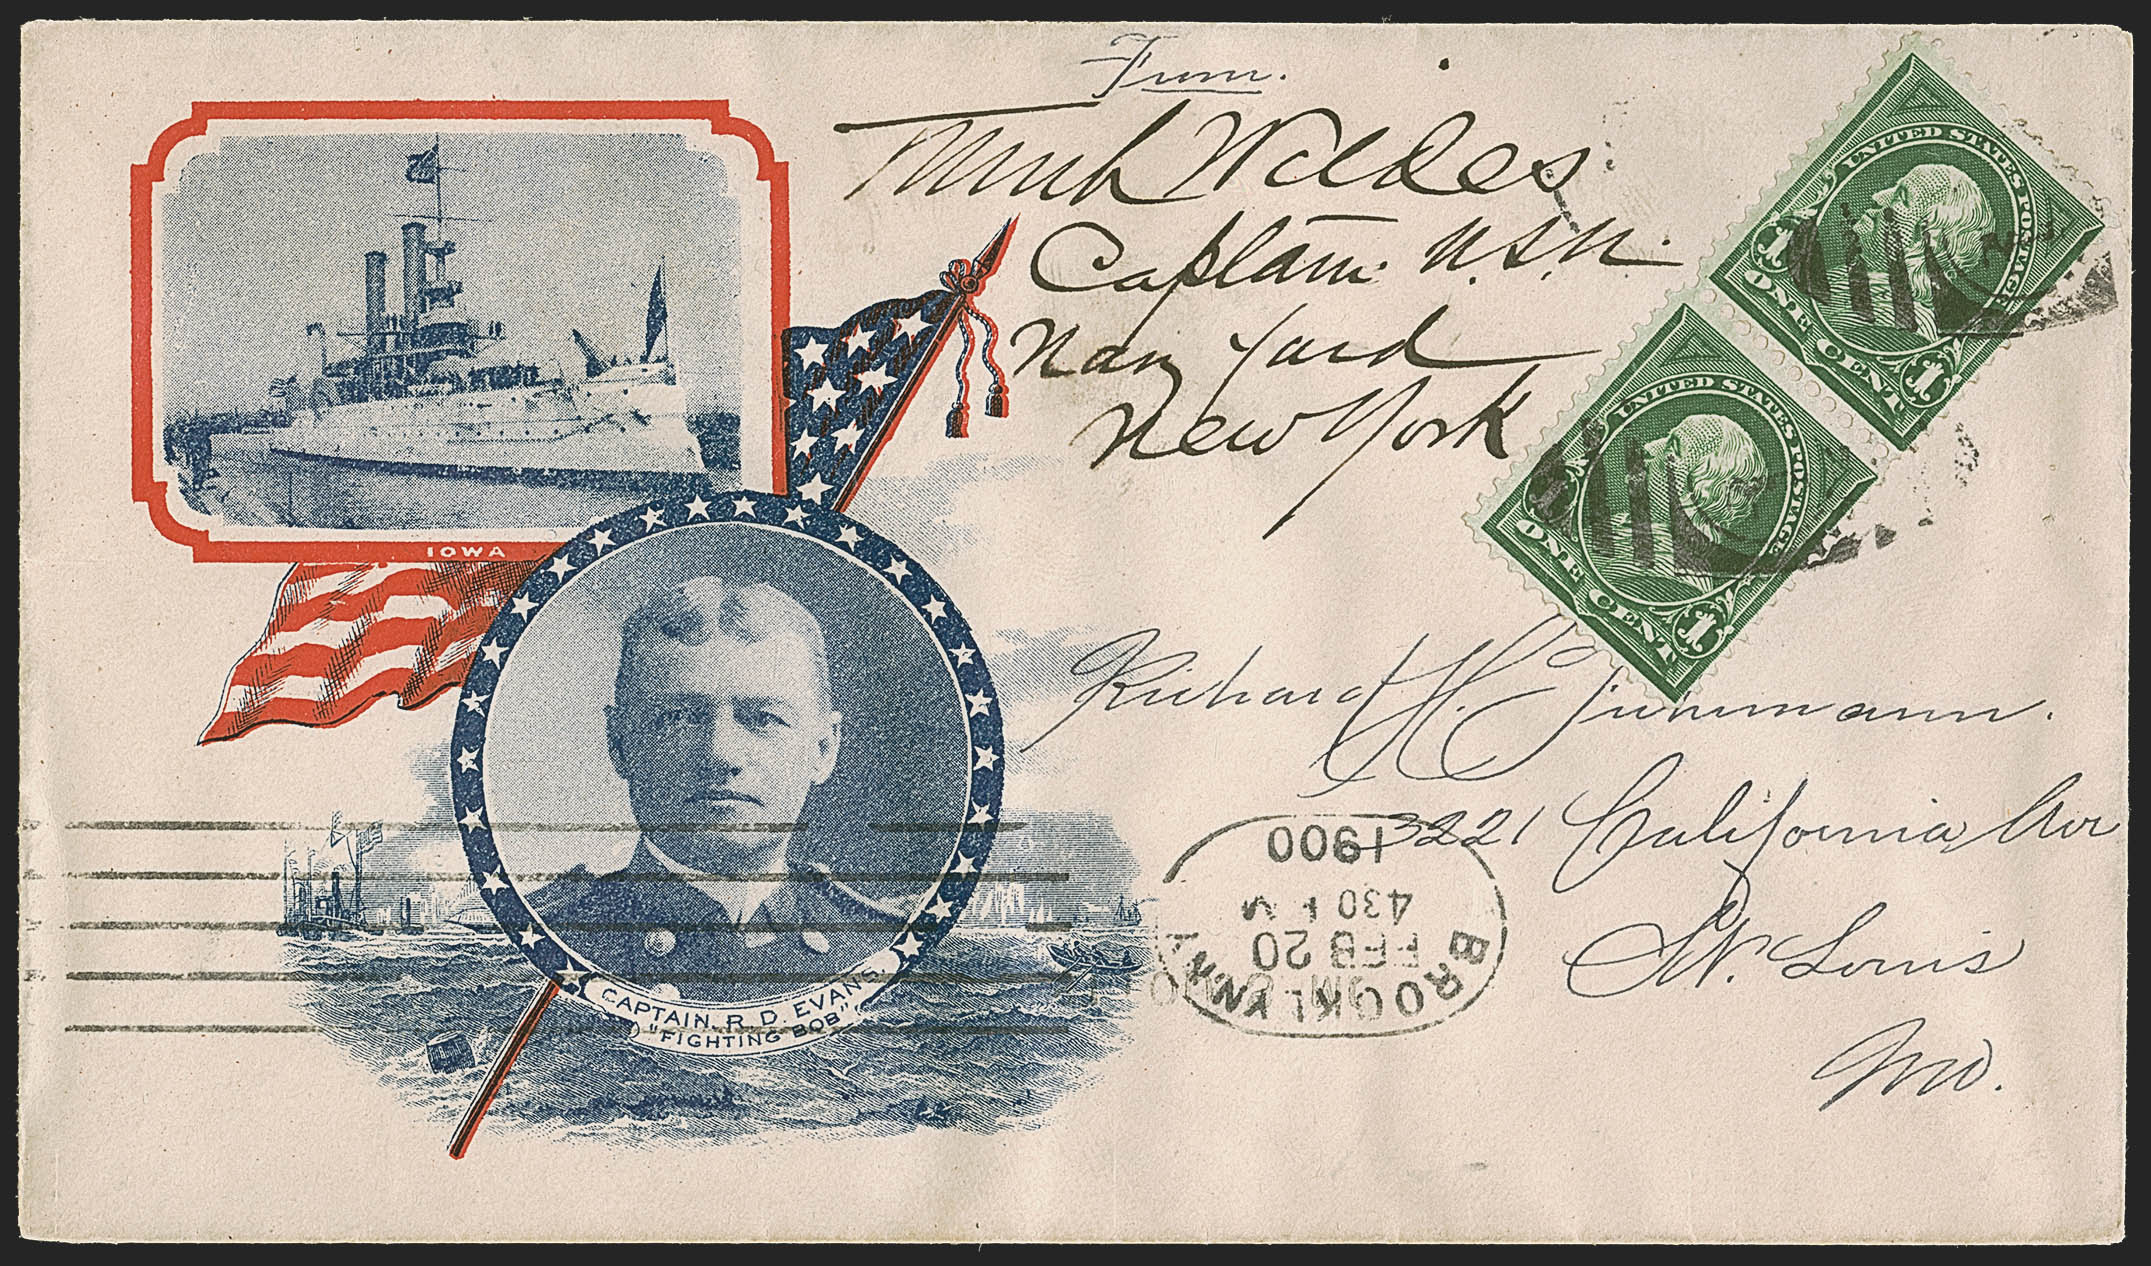 From.
Frank Wildes
Captain U.S.N.
Navy Yard
New York
UNITED STATES POSTAGE
1 1
ONE CENT
UNITED STATES POSTAGE
1 1
ONE CENT
IOWA
CAPTAIN. R. D. EVANS.
"FIGHTING BOB"
Richard H. Fuhrmann.
3221 California Ave
St. Louis
Mo.
BROOKLYN, N.Y.
FEB 20
430 P M
1900